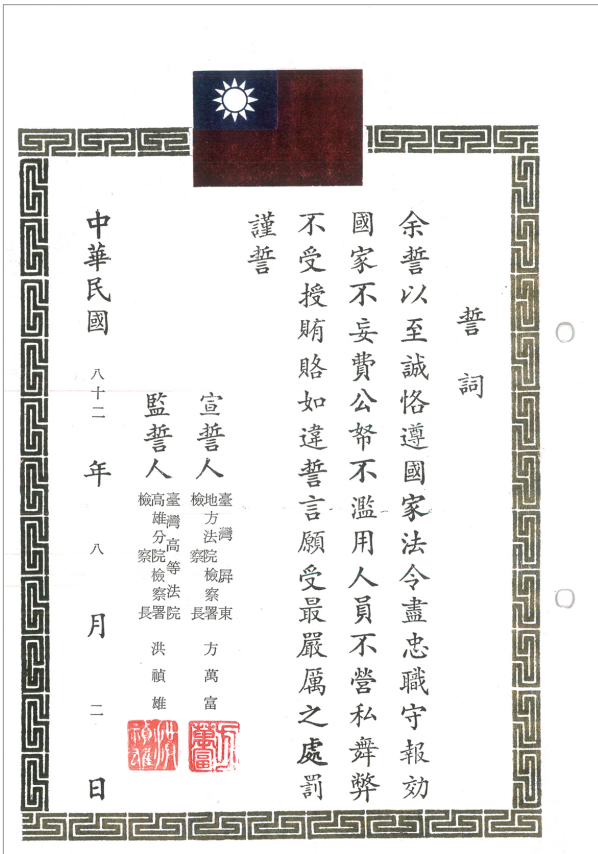 誓詞
余誓以至誠恪遵國家法令盡忠職守報効
國家不妄費公帑不濫用人員不營私舞弊
不受授賄賂如違誓言願受最嚴厲之處罰
謹誓
宣誓人 臺灣屏東地方法院檢察署檢察長 方萬富
監誓人 臺灣高等法院高雄分院檢察署檢察長 洪禎雄
中華民國八十二年八月二日
方萬富
洪禎雄